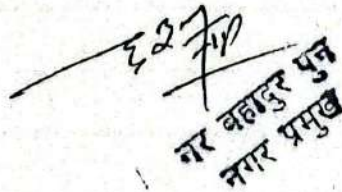 नर बहादुर पुन
नगर प्रमुख